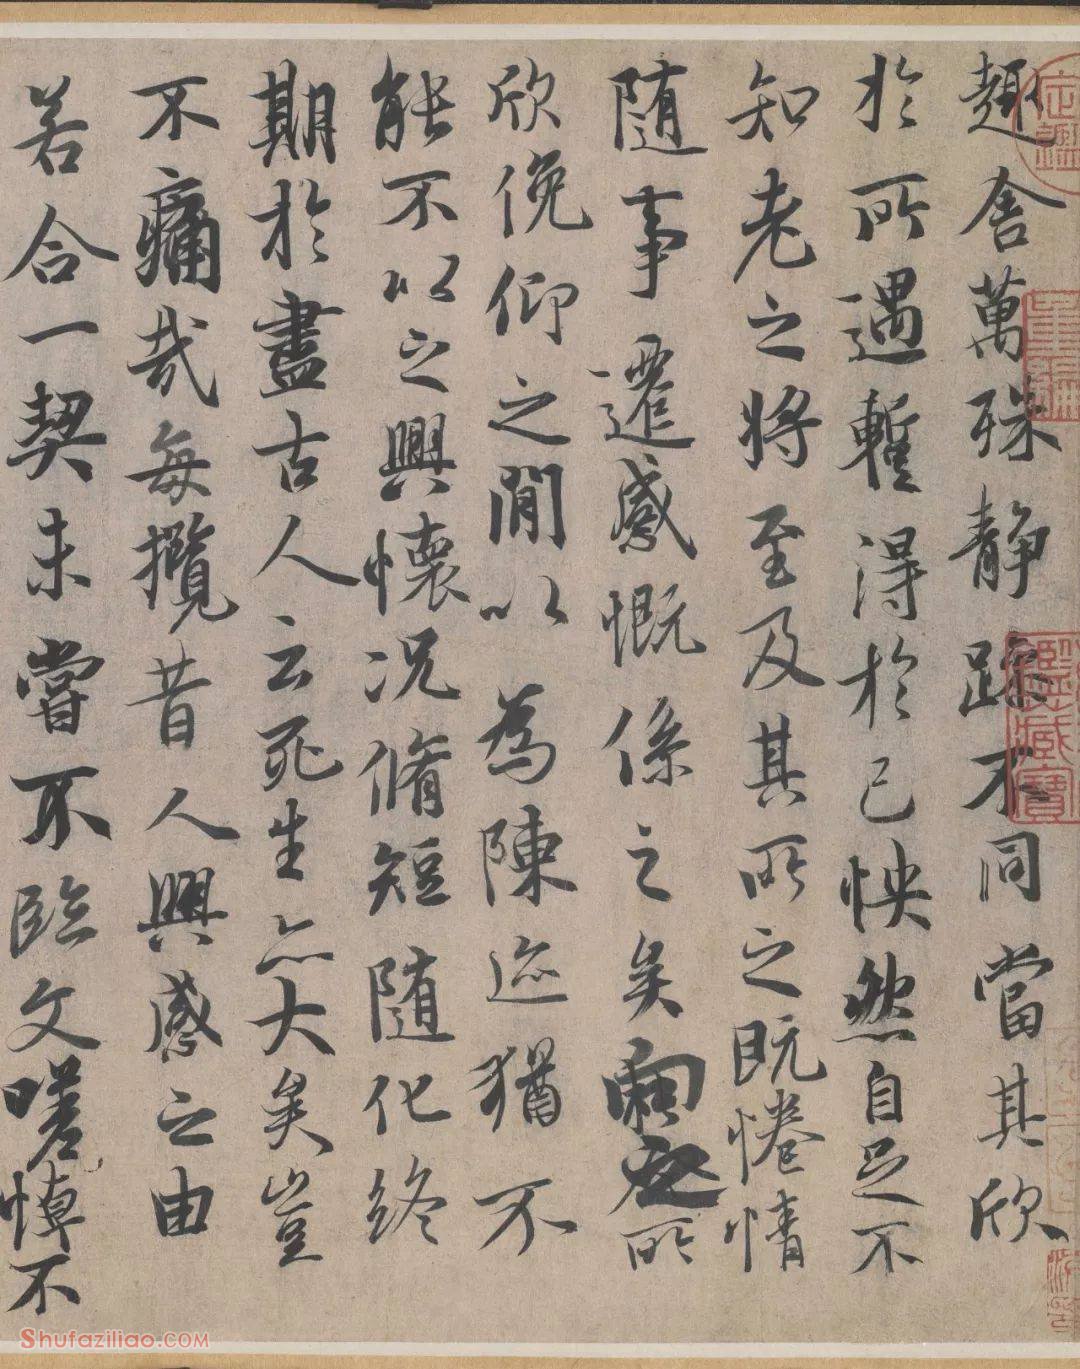 趣舍萬殊静躁不同當其欣
於所遇蹔得於己怏然自足不
知老之將至及其所之既惓情
随事遷感慨係之矣向之所
欣俛仰之閒以為陳迹猶不
能不以之興懷況脩短随化終
期於盡古人云死生亦大矣豈
不痛哉每攬昔人興感之由
若合一契未嘗不臨文嗟悼不
鑑藏寶
Shufaziliao.COM